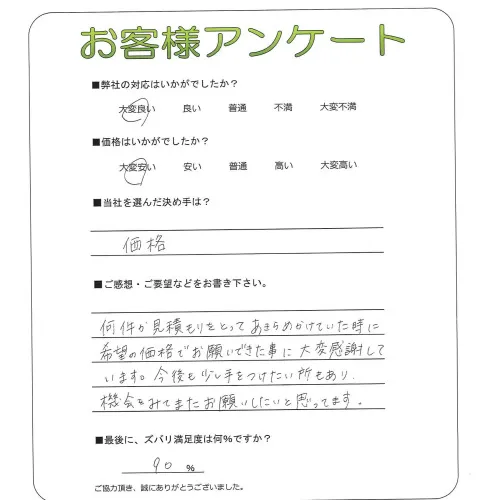 お客様アンケート
■弊社の対応はいかがでしたか？
大変良い 良い 普通 不満 大変不満
■価格はいかがでしたか？
大変安い 安い 普通 高い 大変高い
■当社を選んだ決め手は？
価格
■ご感想・ご要望などをお書き下さい。
何件か見積もりをとって あきらめかけていた時に
希望の価格でお願いできた事に 大変感謝して
います。今後も少し手をつけたい所もあり、
機会をみてまたお願いしたいと思ってます。
■最後に、ズバリ満足度は何％ですか？
90 ％
ご協力頂き、誠にありがとうございました。